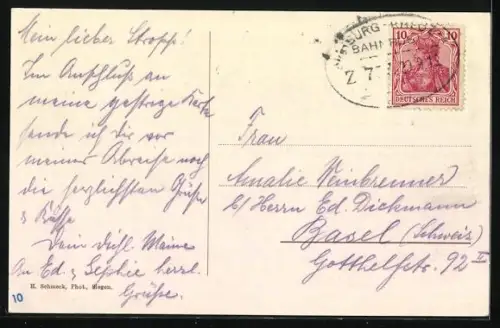 Mein lieber Stropp!
Im Anschluß an
meine gestrige Karte
sende ich dir vor
meiner Abreise noch
die herzlichsten Grüße
& Küsse
Dein dichl. Maine
An Ed & Sephie herzl.
Grüße.
H. Schmeck, Phot., Hagen.
10
BAHNPOST
Z 7
10 10
DEUTSCHES REICH
Frau
Amalie Weinbrenner
c/ Herrn Ed. Dickmann
Basel (Schweiz)
Gotthelfstr. 92 II